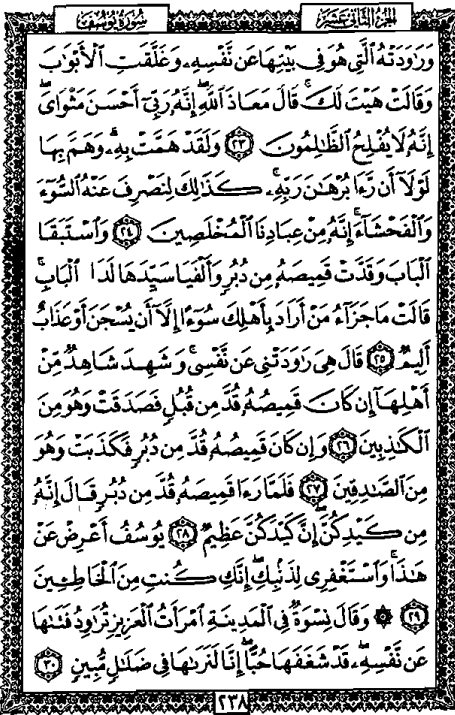 سُورَةُ يُوسُفَ
الجُزْءُ الثَّانِي عَشَرَ
وَرَٰوَدَتْهُ ٱلَّتِى هُوَ فِى بَيْتِهَا عَن نَّفْسِهِۦ وَغَلَّقَتِ ٱلْأَبْوَٰبَ
وَقَالَتْ هَيْتَ لَكَ ۚ قَالَ مَعَاذَ ٱللَّهِ ۖ إِنَّهُۥ رَبِّىٓ أَحْسَنَ مَثْوَاىَ ۖ
إِنَّهُۥ لَا يُفْلِحُ ٱلظَّٰلِمُونَ ٢٣ وَلَقَدْ هَمَّتْ بِهِۦ ۖ وَهَمَّ بِهَا
لَوْلَآ أَن رَّءَا بُرْهَٰنَ رَبِّهِۦ ۚ كَذَٰلِكَ لِنَصْرِفَ عَنْهُ ٱلسُّوٓءَ
وَٱلْفَحْشَآءَ ۚ إِنَّهُۥ مِنْ عِبَادِنَا ٱلْمُخْلَصِينَ ٢٤ وَٱسْتَبَقَا
ٱلْبَابَ وَقَدَّتْ قَمِيصَهُۥ مِن دُبُرٍ وَأَلْفَيَا سَيِّدَهَا لَدَا ٱلْبَابِ ۚ
قَالَتْ مَا جَزَآءُ مَنْ أَرَادَ بِأَهْلِكَ سُوٓءًا إِلَّآ أَن يُسْجَنَ أَوْ عَذَابٌ
أَلِيمٌ ٢٥ قَالَ هِىَ رَٰوَدَتْنِى عَن نَّفْسِى ۚ وَشَهِدَ شَاهِدٌ مِّنْ
أَهْلِهَآ إِن كَانَ قَمِيصُهُۥ قُدَّ مِن قُبُلٍ فَصَدَقَتْ وَهُوَ مِنَ
ٱلْكَٰذِبِينَ ٢٦ وَإِن كَانَ قَمِيصُهُۥ قُدَّ مِن دُبُرٍ فَكَذَبَتْ وَهُوَ
مِنَ ٱلصَّٰدِقِينَ ٢٧ فَلَمَّا رَءَا قَمِيصَهُۥ قُدَّ مِن دُبُرٍ قَالَ إِنَّهُۥ
مِن كَيْدِكُنَّ ۖ إِنَّ كَيْدَكُنَّ عَظِيمٌ ٢٨ يُوسُفُ أَعْرِضْ عَنْ
هَٰذَا ۚ وَٱسْتَغْفِرِى لِذَنۢبِكِ ۖ إِنَّكِ كُنتِ مِنَ ٱلْخَاطِـِٔينَ
٢٩ ۞ وَقَالَ نِسْوَةٌ فِى ٱلْمَدِينَةِ ٱمْرَأَتُ ٱلْعَزِيزِ تُرَٰوِدُ فَتَىٰهَا
عَن نَّفْسِهِۦ ۖ قَدْ شَغَفَهَا حُبًّا ۖ إِنَّا لَنَرَىٰهَا فِى ضَلَٰلٍ مُّبِينٍ ٣٠
٢٣٨